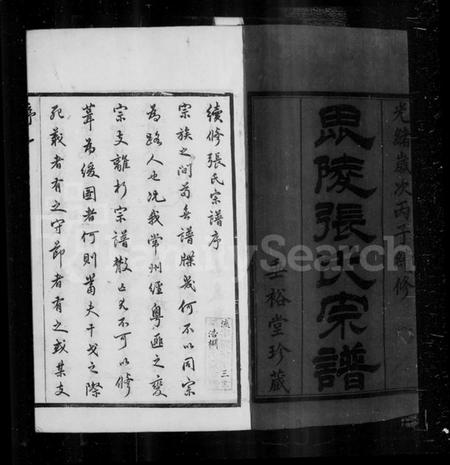 光緒歲次丙子續修
毘陵張氏宗譜
裕堂珍藏
續修張氏宗譜序
宗族之間苟無譜牒幾何不以同宗
為路人也况我常州經粵匪之變
宗支離析宗譜散亡尤不可以修
葺為緩圖者何則當夫干戈之際
死義者有之守節者有之或某支
序
一
FamilySearch